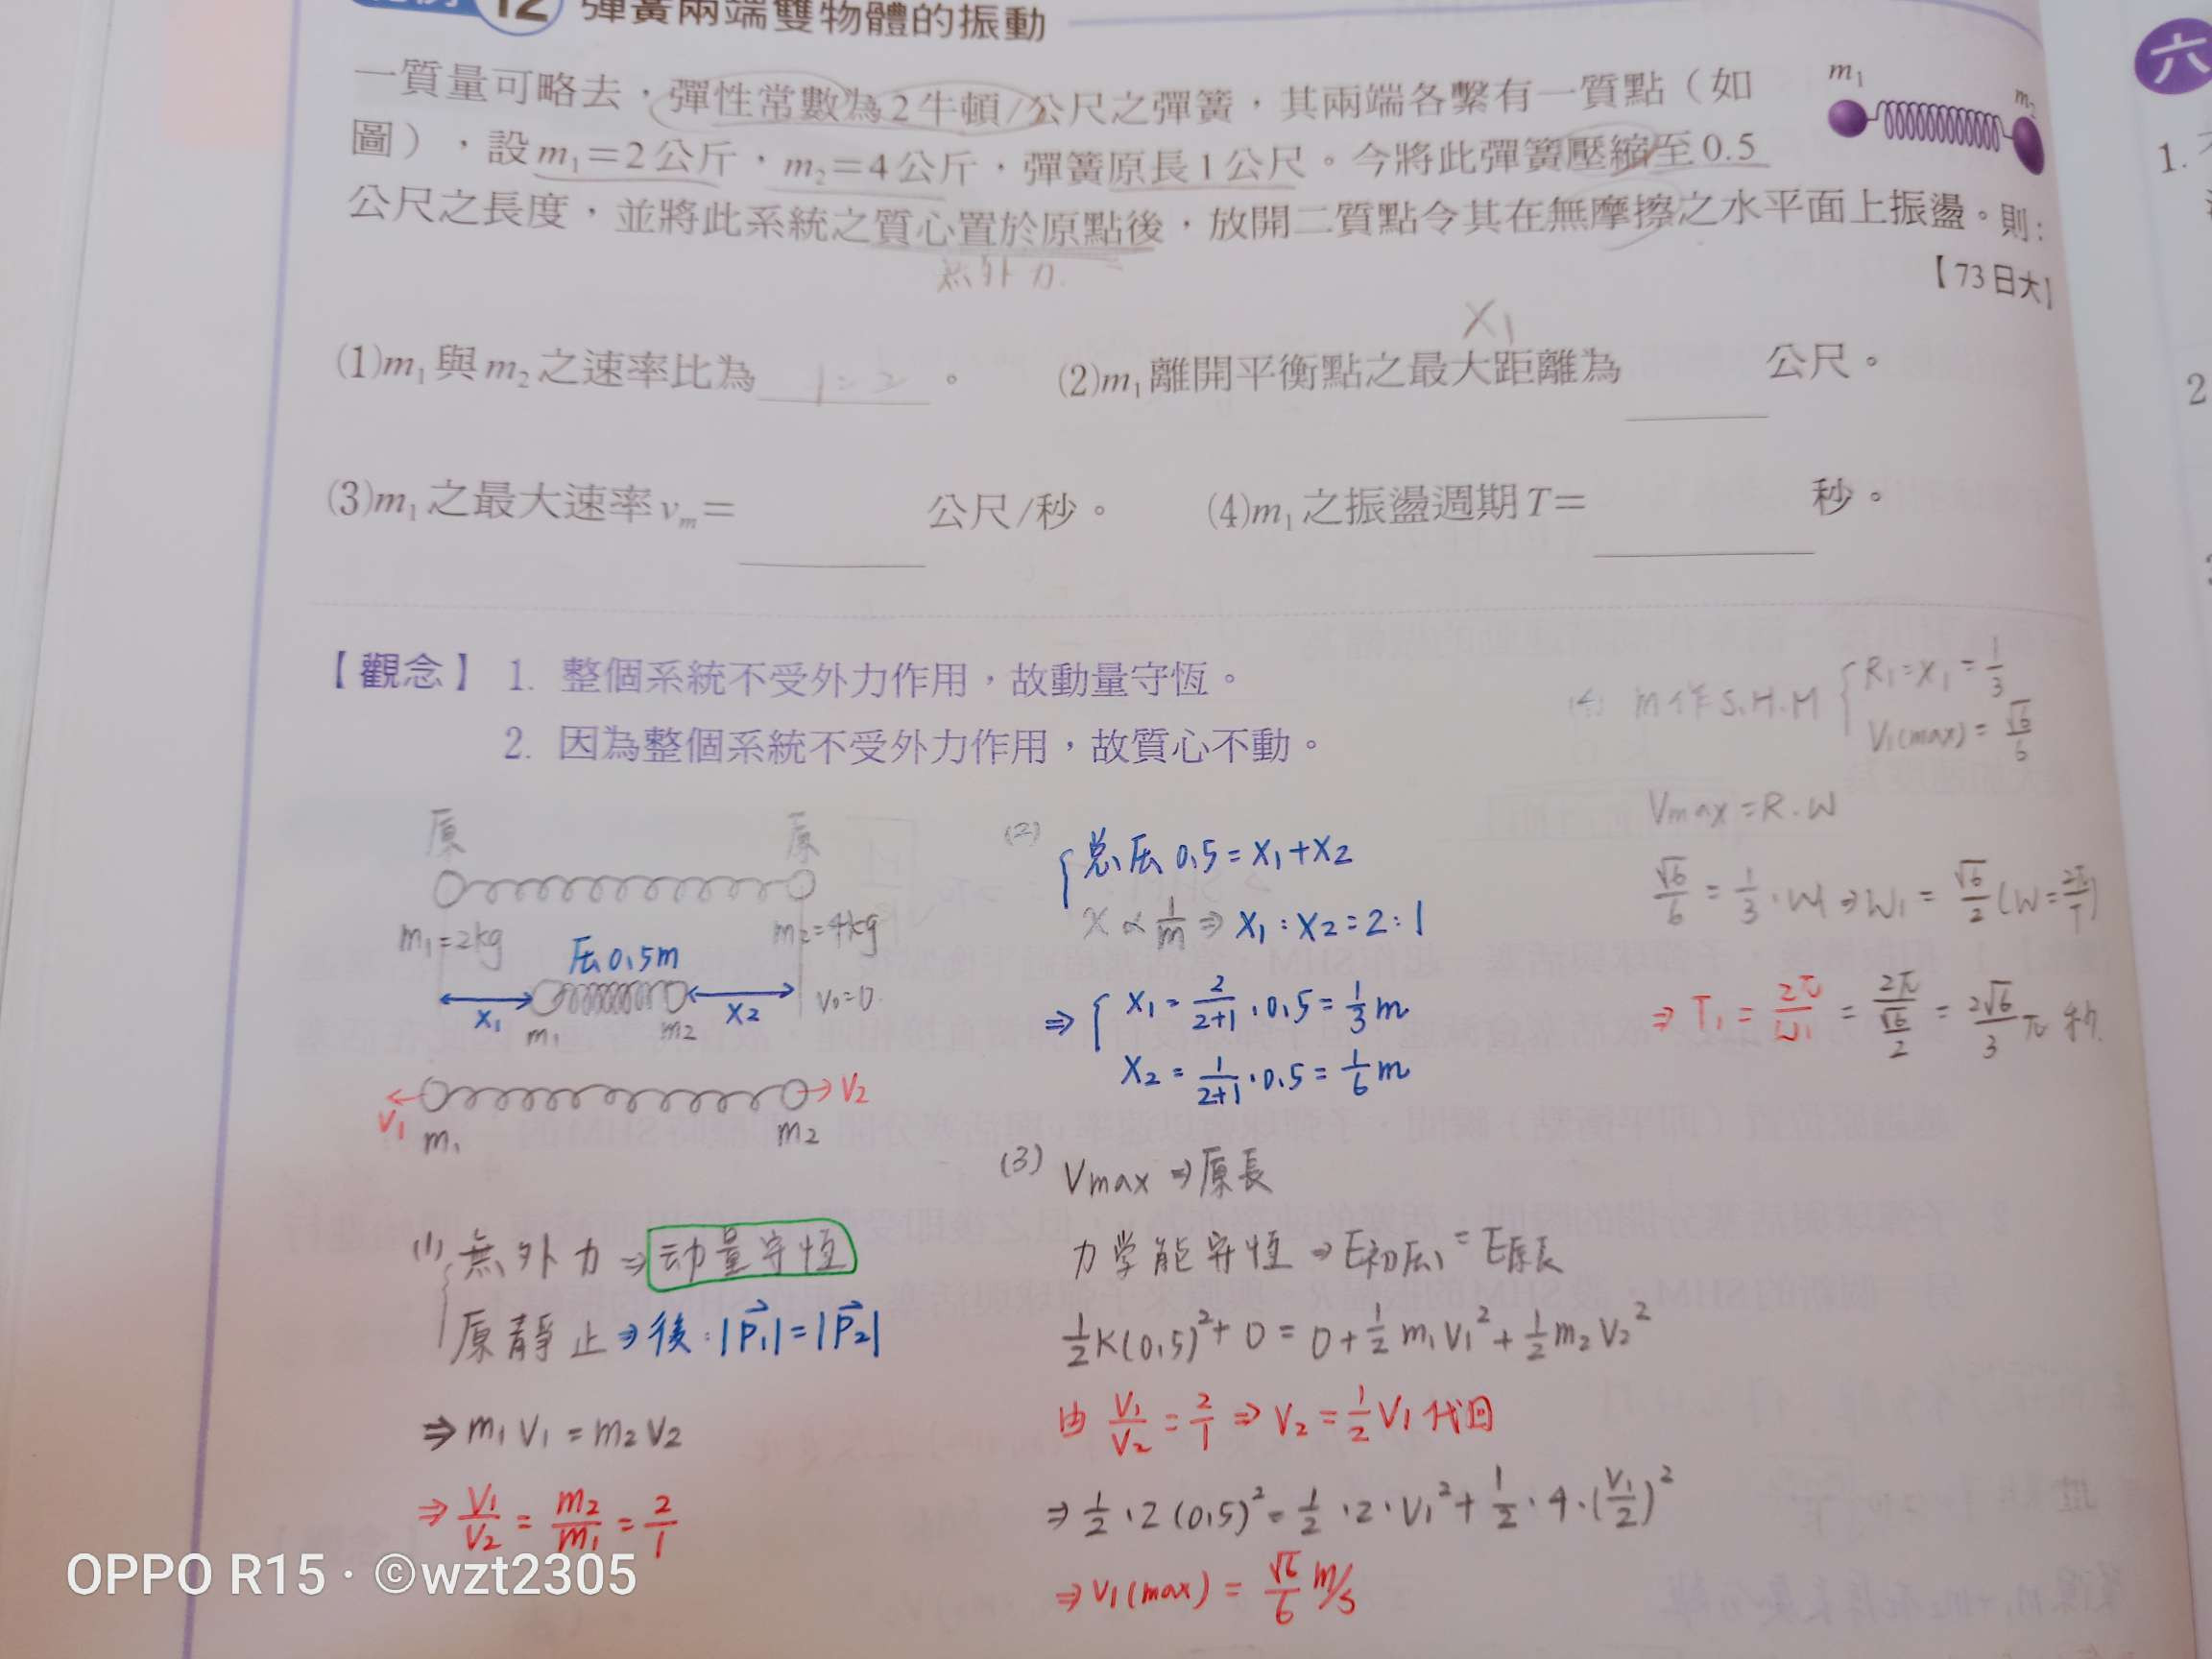 12 彈簧兩端雙物體的振動
一質量可略去，彈性常數為2牛頓/公尺之彈簧，其兩端各繫有一質點（如
圖），設m₁=2公斤，m₂=4公斤，彈簧原長1公尺。今將此彈簧壓縮至0.5
公尺之長度，並將此系統之質心置於原點後，放開二質點令其在無摩擦之水平面上振盪。則：
m₁
m₂
無外力
【73日大】
(1)m₁與m₂之速率比為 1:2 。
X₁
(2)m₁離開平衡點之最大距離為 公尺。
(3)m₁之最大速率vₘ= 公尺/秒。
(4)m₁之振盪週期T= 秒。
【觀念】 1. 整個系統不受外力作用，故動量守恆。
2. 因為整個系統不受外力作用，故質心不動。
原 原
m₁=2kg m₂=4kg
压0.5m
X₁ X₂ V₀=0
m₁ m₂
V₁ V₂
m₁ m₂
(1) 無外力⇒动量守恆
原靜止⇒後:|P⃗₁|=|P⃗₂|
⇒m₁V₁=m₂V₂
⇒V₁/V₂=m₂/m₁=2/1
(2) 总压0.5=X₁+X₂
X∝1/m⇒X₁:X₂=2:1
⇒X₁=2/(2+1)·0.5=1/3m
X₂=1/(2+1)·0.5=1/6m
(3) Vmax⇒原長
力学能守恆⇒E初压=E原長
½K(0.5)²+0=0+½m₁V₁²+½m₂V₂²
由V₁/V₂=2/1⇒V₂=½V₁代回
⇒½·2(0.5)²=½·2·V₁²+½·4·(V₁/2)²
⇒V₁(max)=√6/6 m/s
(4) m作S.H.M R₁=X₁=1/3
V₁(max)=√6/6
Vmax=R·W
√6/6=1/3·W₁⇒W₁=√6/2(W=2π/T)
⇒T₁=2π/W₁=2π/(√6/2)=2√6/3π秒.
六
1.
2
OPPO R15 · ©wzt2305